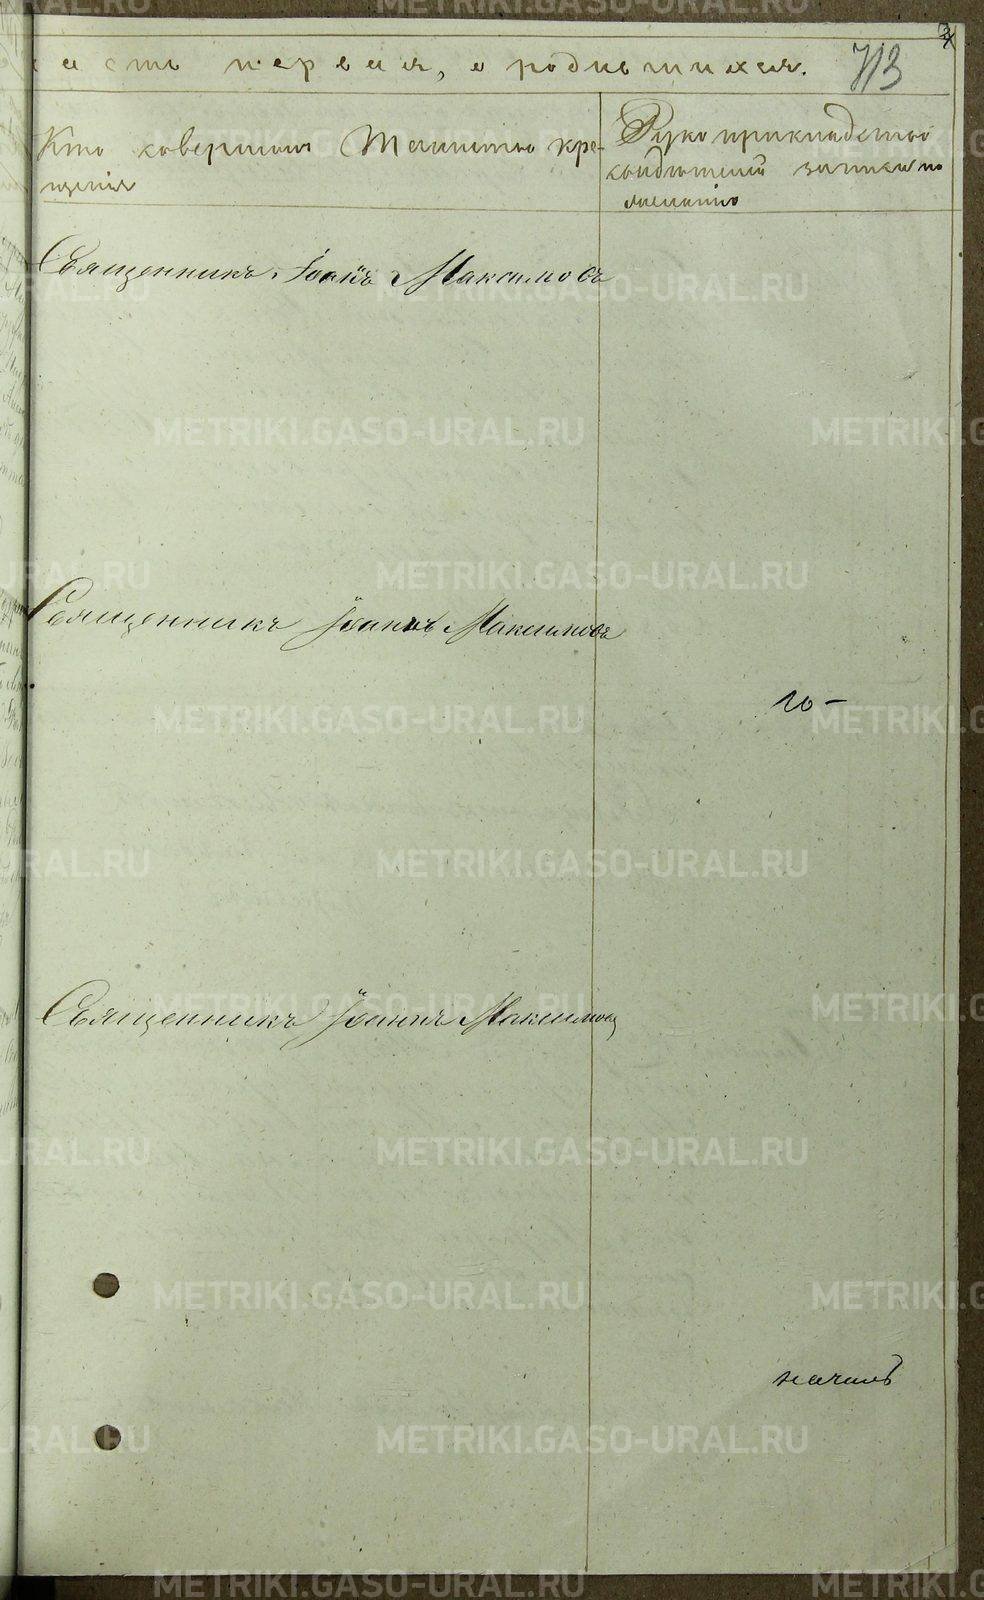 асть первая, о родившихся.
713
Кто совершал Таинство кре-
щенія
Рукоприкладство
свидѣтелей записи по
желанію
Священникъ Іоаннъ Максимовъ
Священникъ Іоаннъ Максимовъ
го-
Священникъ Іоаннъ Максимовъ
METRIKI.GASO-URAL.RU